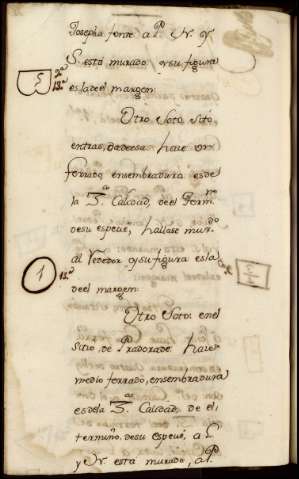 Josepha fonte a P. N. y
S. está murado, y su figura
es la del margen:
Otro Soto, Sito,
entras, da decesa haze un
ferrado, en sembradura es de
la 3.ª Calidad, de el Germ.no
de su espeve, hallase mur.do
al Vededor y su figura es la
de el margen:
Otro Soto: en el
Sitio, de Pradorade: haze
medio ferrado, en sembradura
es de la 3.ª Calidad, de el
termino, de su espevé, a L
y N. está murado, a P.
1
12.ª